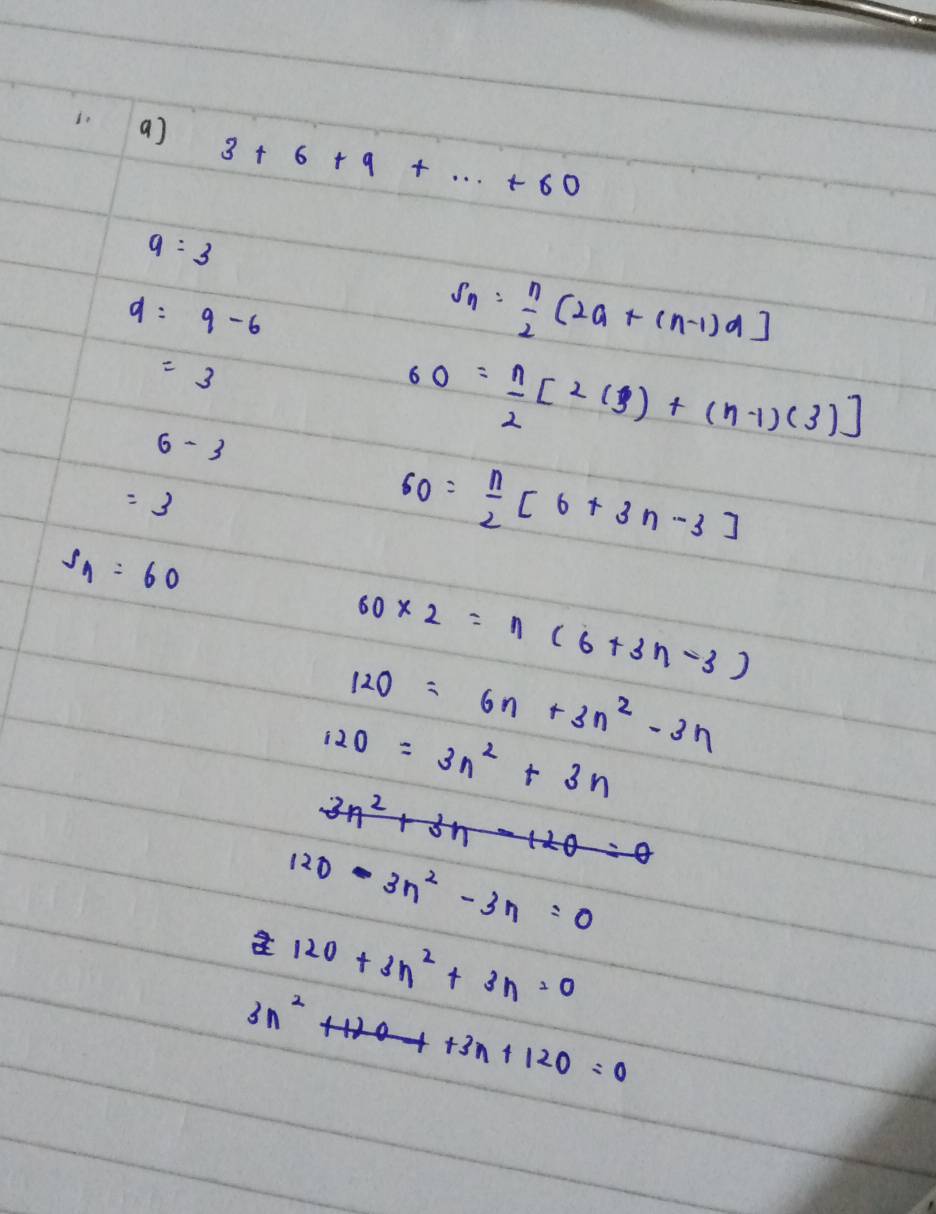 1. a) 3 + 6 + 9 + ... + 60
a = 3
d = 9 - 6
= 3
6 - 3
= 3
Sn = 60
Sn = n/2 [2a + (n-1)d]
60 = n/2 [2(3) + (n-1)(3)]
60 = n/2 [6 + 3n - 3]
60 × 2 = n (6 + 3n - 3)
120 = 6n + 3n² - 3n
120 = 3n² + 3n
3n² + 3n - 120 = 0
120 - 3n² - 3n = 0
120 + 3n² + 3n = 0
3n² +120 + +3n + 120 = 0